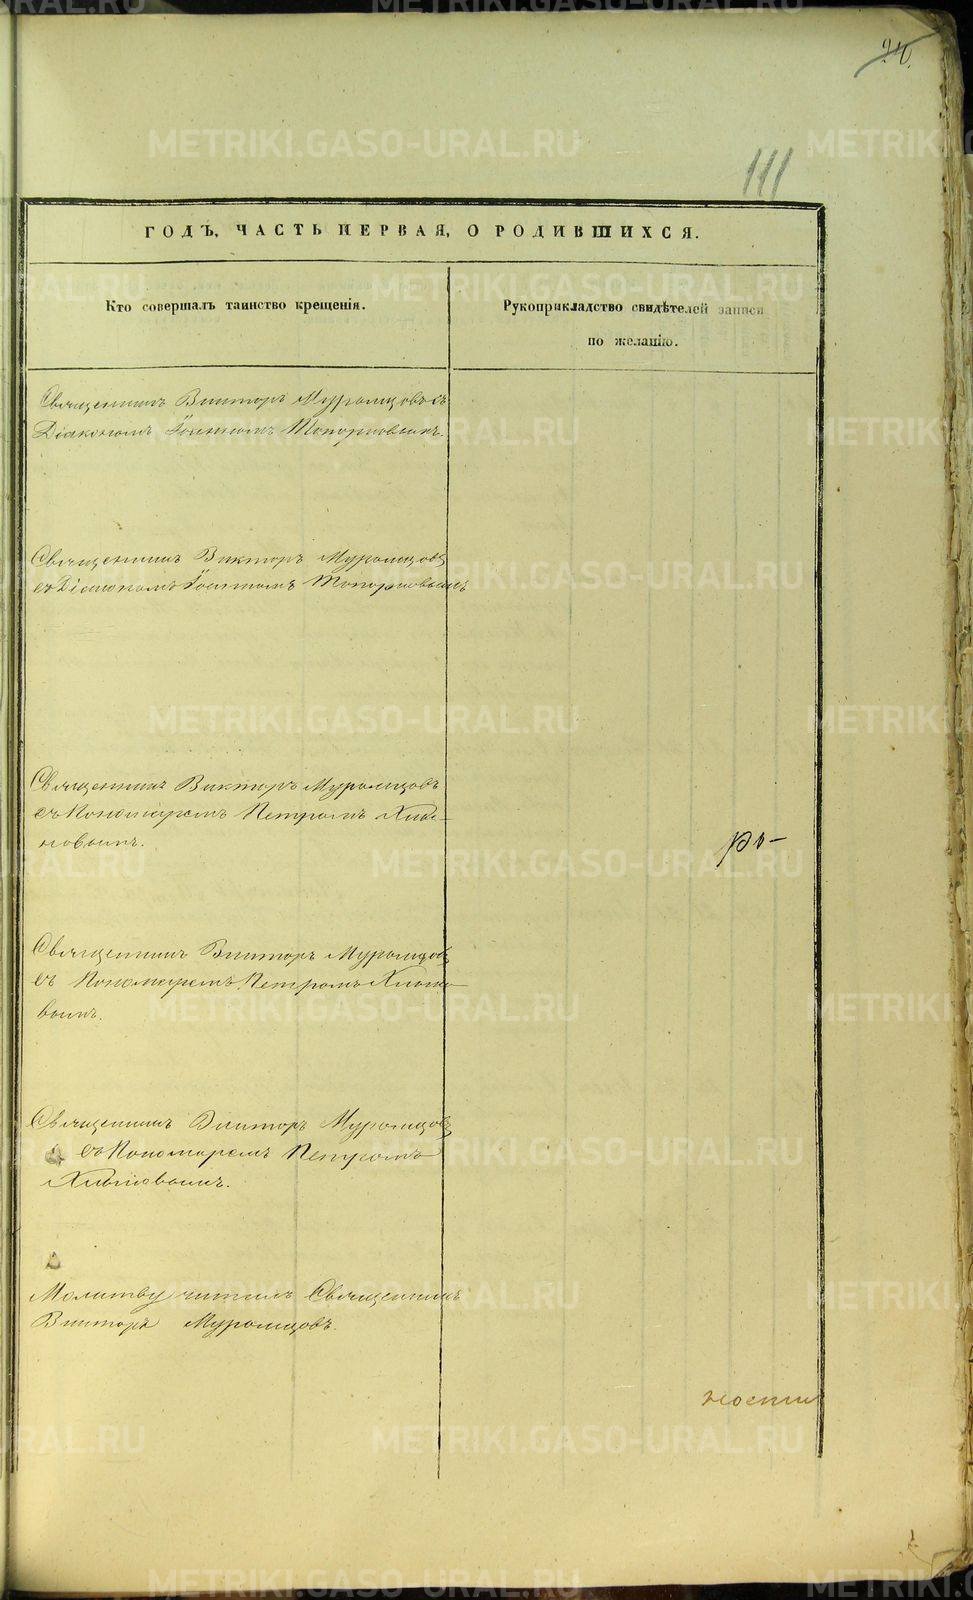 111
ГОДЪ, ЧАСТЬ ПЕРВАЯ, О РОДИВШИХСЯ.
Кто совершалъ таинство крещенія.
Рукоприкладство свидѣтелей записи
по желанію.
Священникъ Викторъ Муромцовъ съ
Діакономъ Іоанномъ Топорковымъ.
Священникъ Викторъ Муромцовъ
съ Діакономъ Іоанномъ Топорковымъ
Священникъ Викторъ Муромцовъ
съ Пономаремъ Петромъ
новымъ.
Священникъ Викторъ Муромцовъ
съ Пономаремъ Петромъ
вымъ.
Священникъ Викторъ Муромцовъ
съ Пономаремъ Петромъ
Молитву читалъ Священникъ
Викторъ Муромцовъ.
METRIKI.GASO-URAL.RU